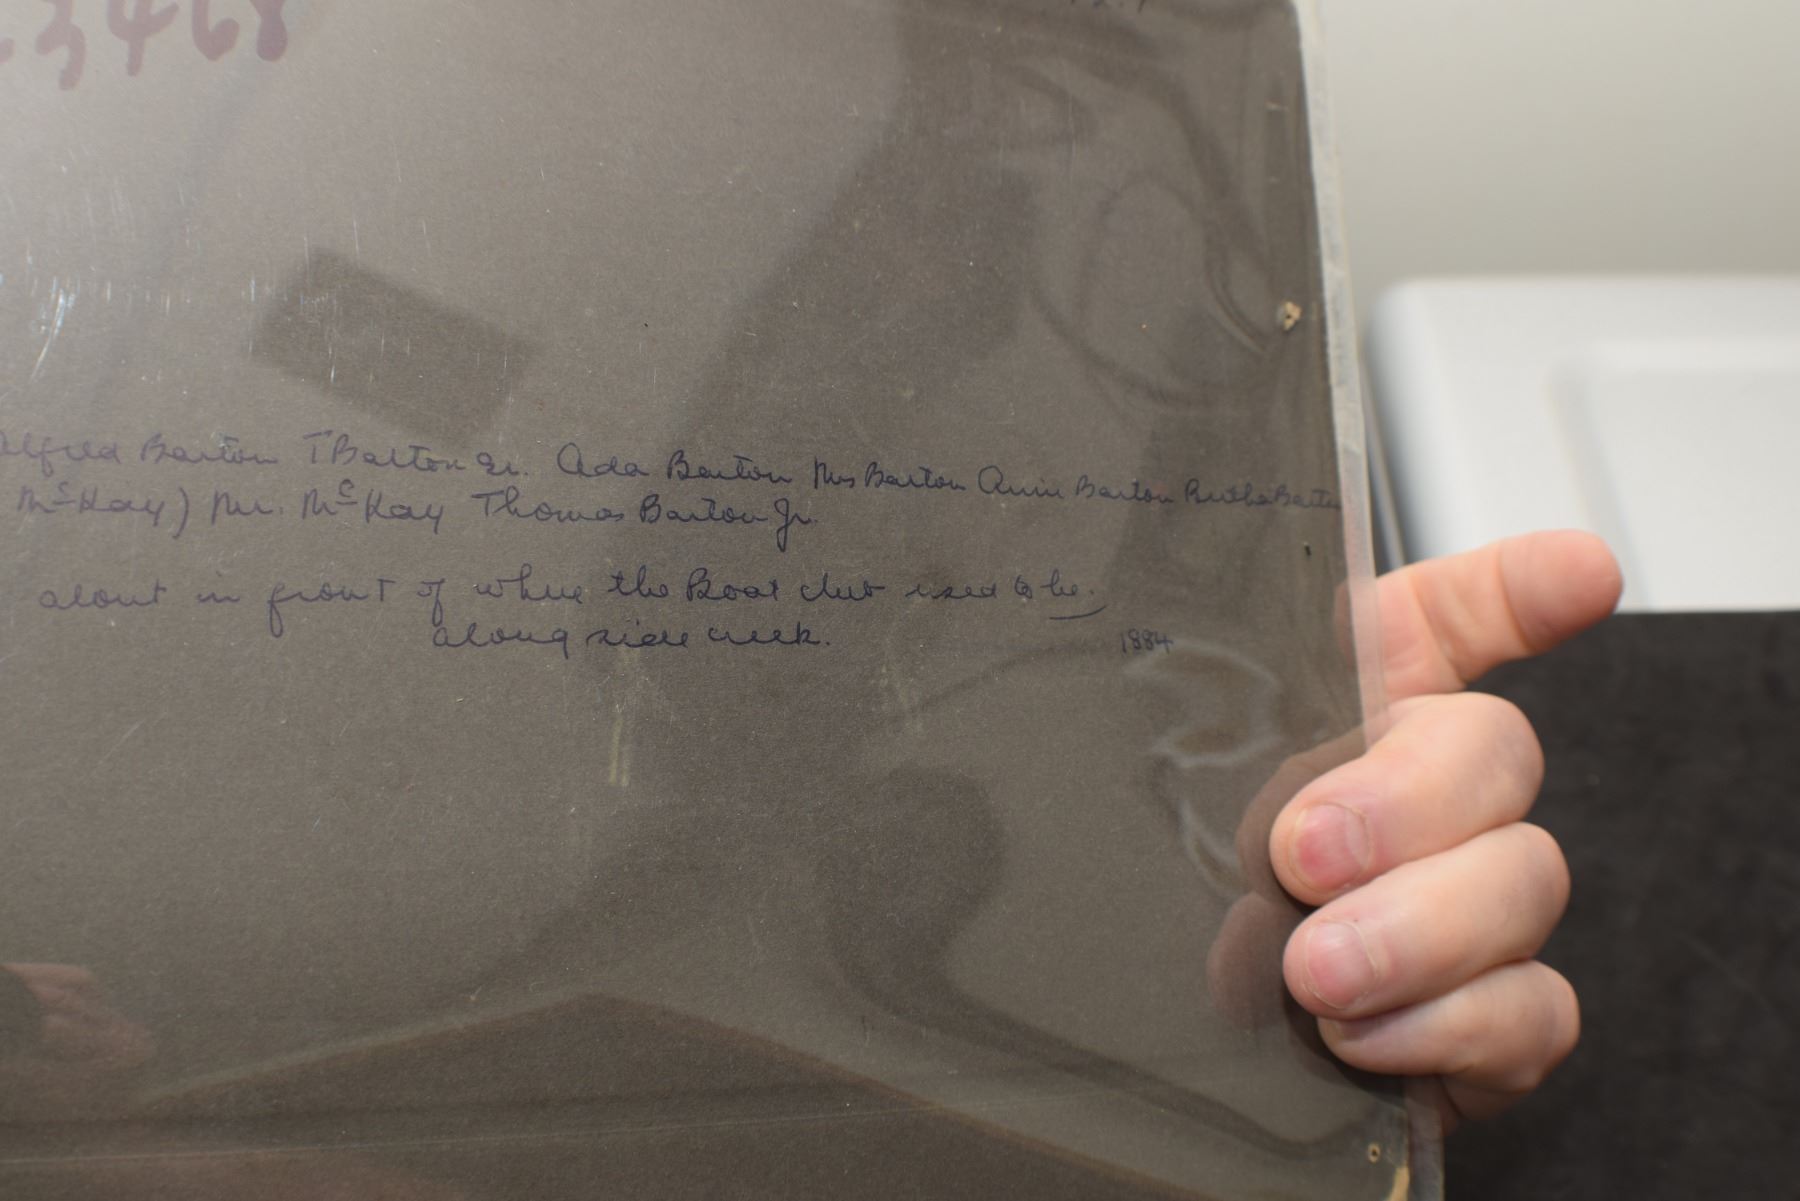 3468
Alfred Barton T Barton Sr. Ada Barton Mrs Barton Annie Barton Barton
McKay) Mr. McKay Thomas Barton Jr.
about in front of where the Boat club used to be.
along side creek.
1884